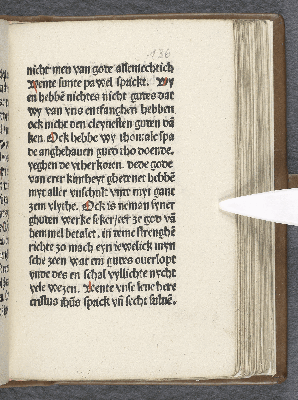 136
nicht men van gode allemechtich
Wente sunte pawel sprickt. Wy
en hebbē nichtes nicht gudes dat
wy van vns entfanghen hebben
ock nicht den cleynesten guden dā
ken. Ock hebbe wy thomale spa
de anghehauen gued tho doende.
yeghen de vtherkoren. de de gode
van erer kintheyt ghedenet hebbē
myt aller vnschult vnde myt gantz
zem vlythe. Ock is neman syner
ghuden werke seker/eer ze god vā
hemmel betalet. in deme strenghē
richte zo mach eyn iewelick myn
sche zeen wat em gudes ouerlopt
vnde des en schal vyllichte nycht
vele wezen. Wente vnse leue here
cristus ihūs sprack vā